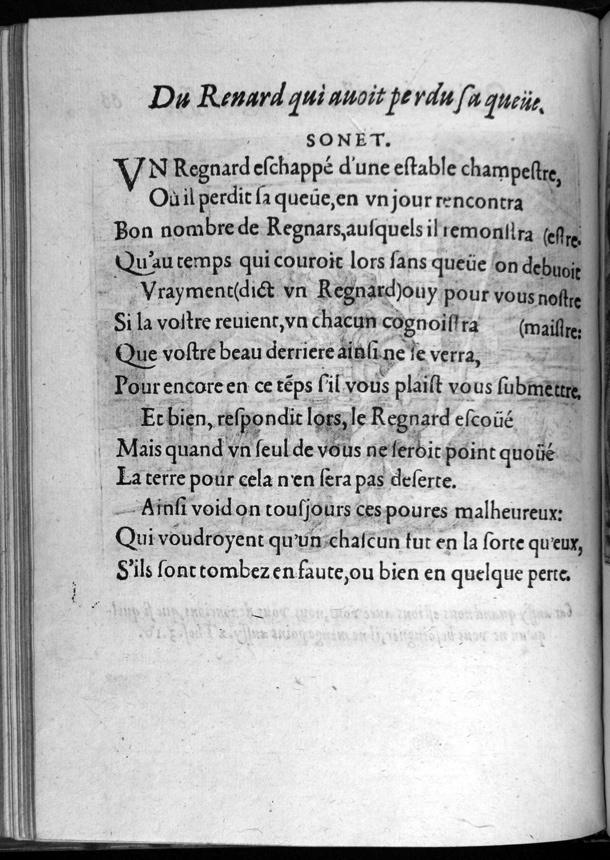 Du Renard qui auoit perdu sa queüe.
SONET.
VN Regnard eſchappé d'vne eſtable champeſtre,
Où il perdit ſa queüe, en vn jour rencontra
Bon nombre de Regnars, auſquels il remonſtra (eſtre.
Qu'au temps qui couroit lors ſans queüe on debuoit
Vrayment (dict vn Regnard) ouy pour vous noſtre
Si la voſtre reuient, vn chacun cognoiſtra (maiſtre:
Que voſtre beau derriere ainſi ne ſe verra,
Pour encore en ce tēps s'il vous plaiſt vous ſubmettre.
Et bien, reſpondit lors, le Regnard eſcoüé
Mais quand vn ſeul de vous ne ſeroit point quoüé
La terre pour cela n'en ſera pas deſerte.
Ainſi void on touſjours ces poures malheureux:
Qui voudroyent qu'un chaſcun fut en la ſorte qu'eux,
S'ils ſont tombez en faute, ou bien en quelque perte.